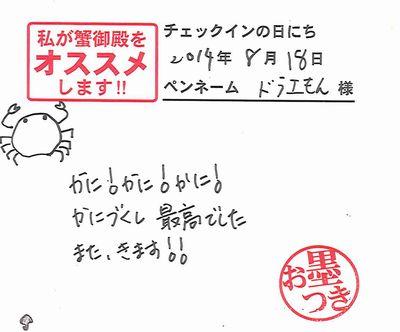 私が蟹御殿を
オススメ
します!!
チェックインの日にち
2014年 8月 18日
ペンネーム ドラエもん 様
かに!かに!かに!
かにづくし 最高でした
また、きます!!
お墨つき